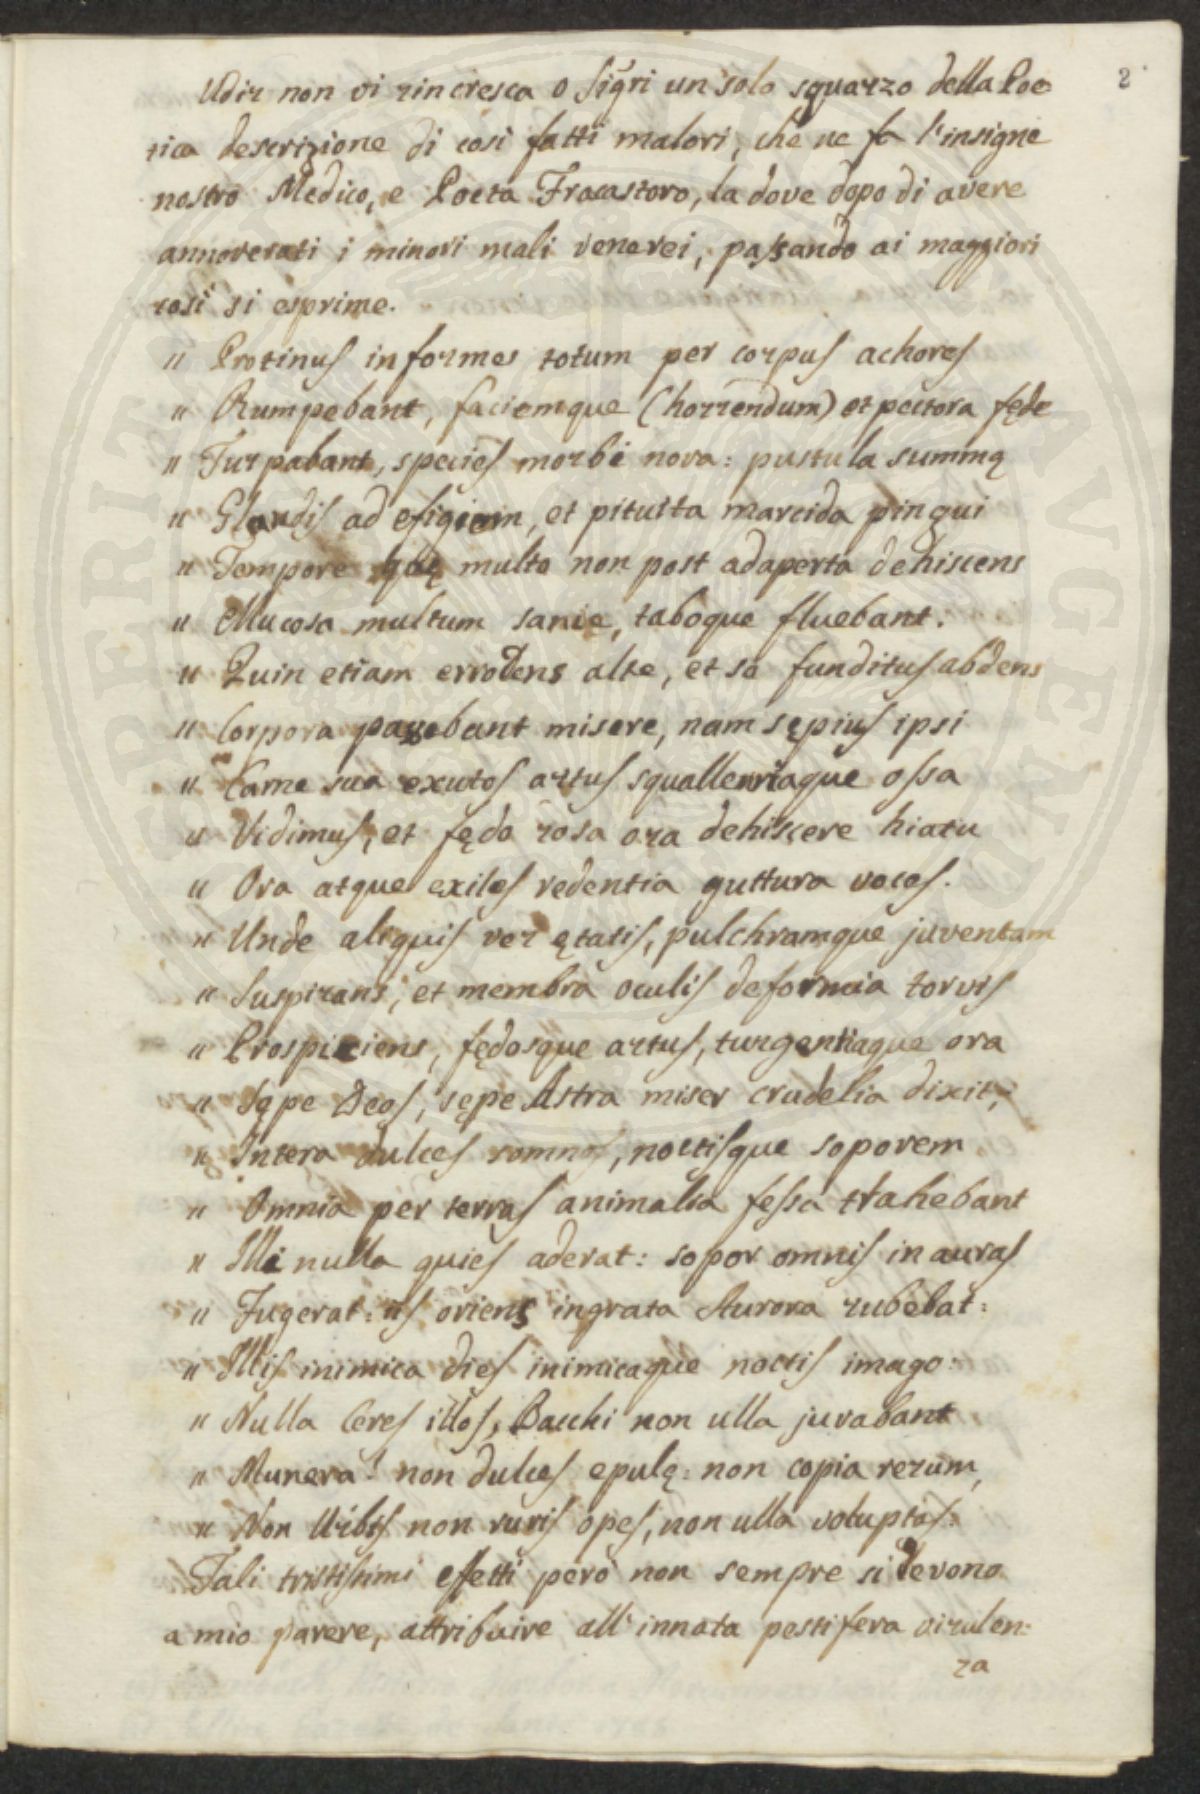 2
Udir non vi rincresca o Sigri un solo squarzo della Poe
tica descrizione di così fatti malori, che ne fa l'insigne
nostro Medico, e Poeta Fracastoro, la dove dopo di avere
annoverati i minori mali venerei, passando ai maggiori
così si esprime.
" Protinus informes totum per corpus achores
" Rumpebant, faciemque (horrendum) et pectora fęde
" Turpabant, species morbi nova: pustula summę
" Glandis ad efigiem, et pituita marcida pingui
" Tempore quę multo non post adaperta dehiscens
" Mucosa multum sanie, taboque fluebant.
" Quin etiam errodens alte, et se funditus abdens
" Corpora pascebant misere, nam sępius ipsi
" Carne sua exutos artus squallentiaque ossa
" Vidimus, et fędo rosa ora dehiscere hiatu
" Ora atque exiles redentia guttura voces.
" Unde aliquis ver ętatis, pulchramque juventam
" Suspirans, et membra oculis deformia torvis
" Prospiciens, fędosque artus, turgentiaque ora
" Sępe Deos, sępe Astra miser crudelia dixit;
" Intera dulces somnos, noctisque soporem
" Omnia per terras animalia fessa trahebant
" Illi nulla quies aderat: sopor omnis in auras
" Fugerat: iis oriens ingrata Aurora rubebat:
" Illis inimica dies inimicaque noctis imago:
" Nulla Ceres illos, Bacchi non ulla juvabant
" Munera: non dulces epulę: non copia rerum,
" Non Urbis non ruris opes, non ulla voluptas:
Tali tristissimi efetti però non sempre si devono
a mio parere, attribuire all'innata pestifera virulen:
za
SPERITA AVGENDO